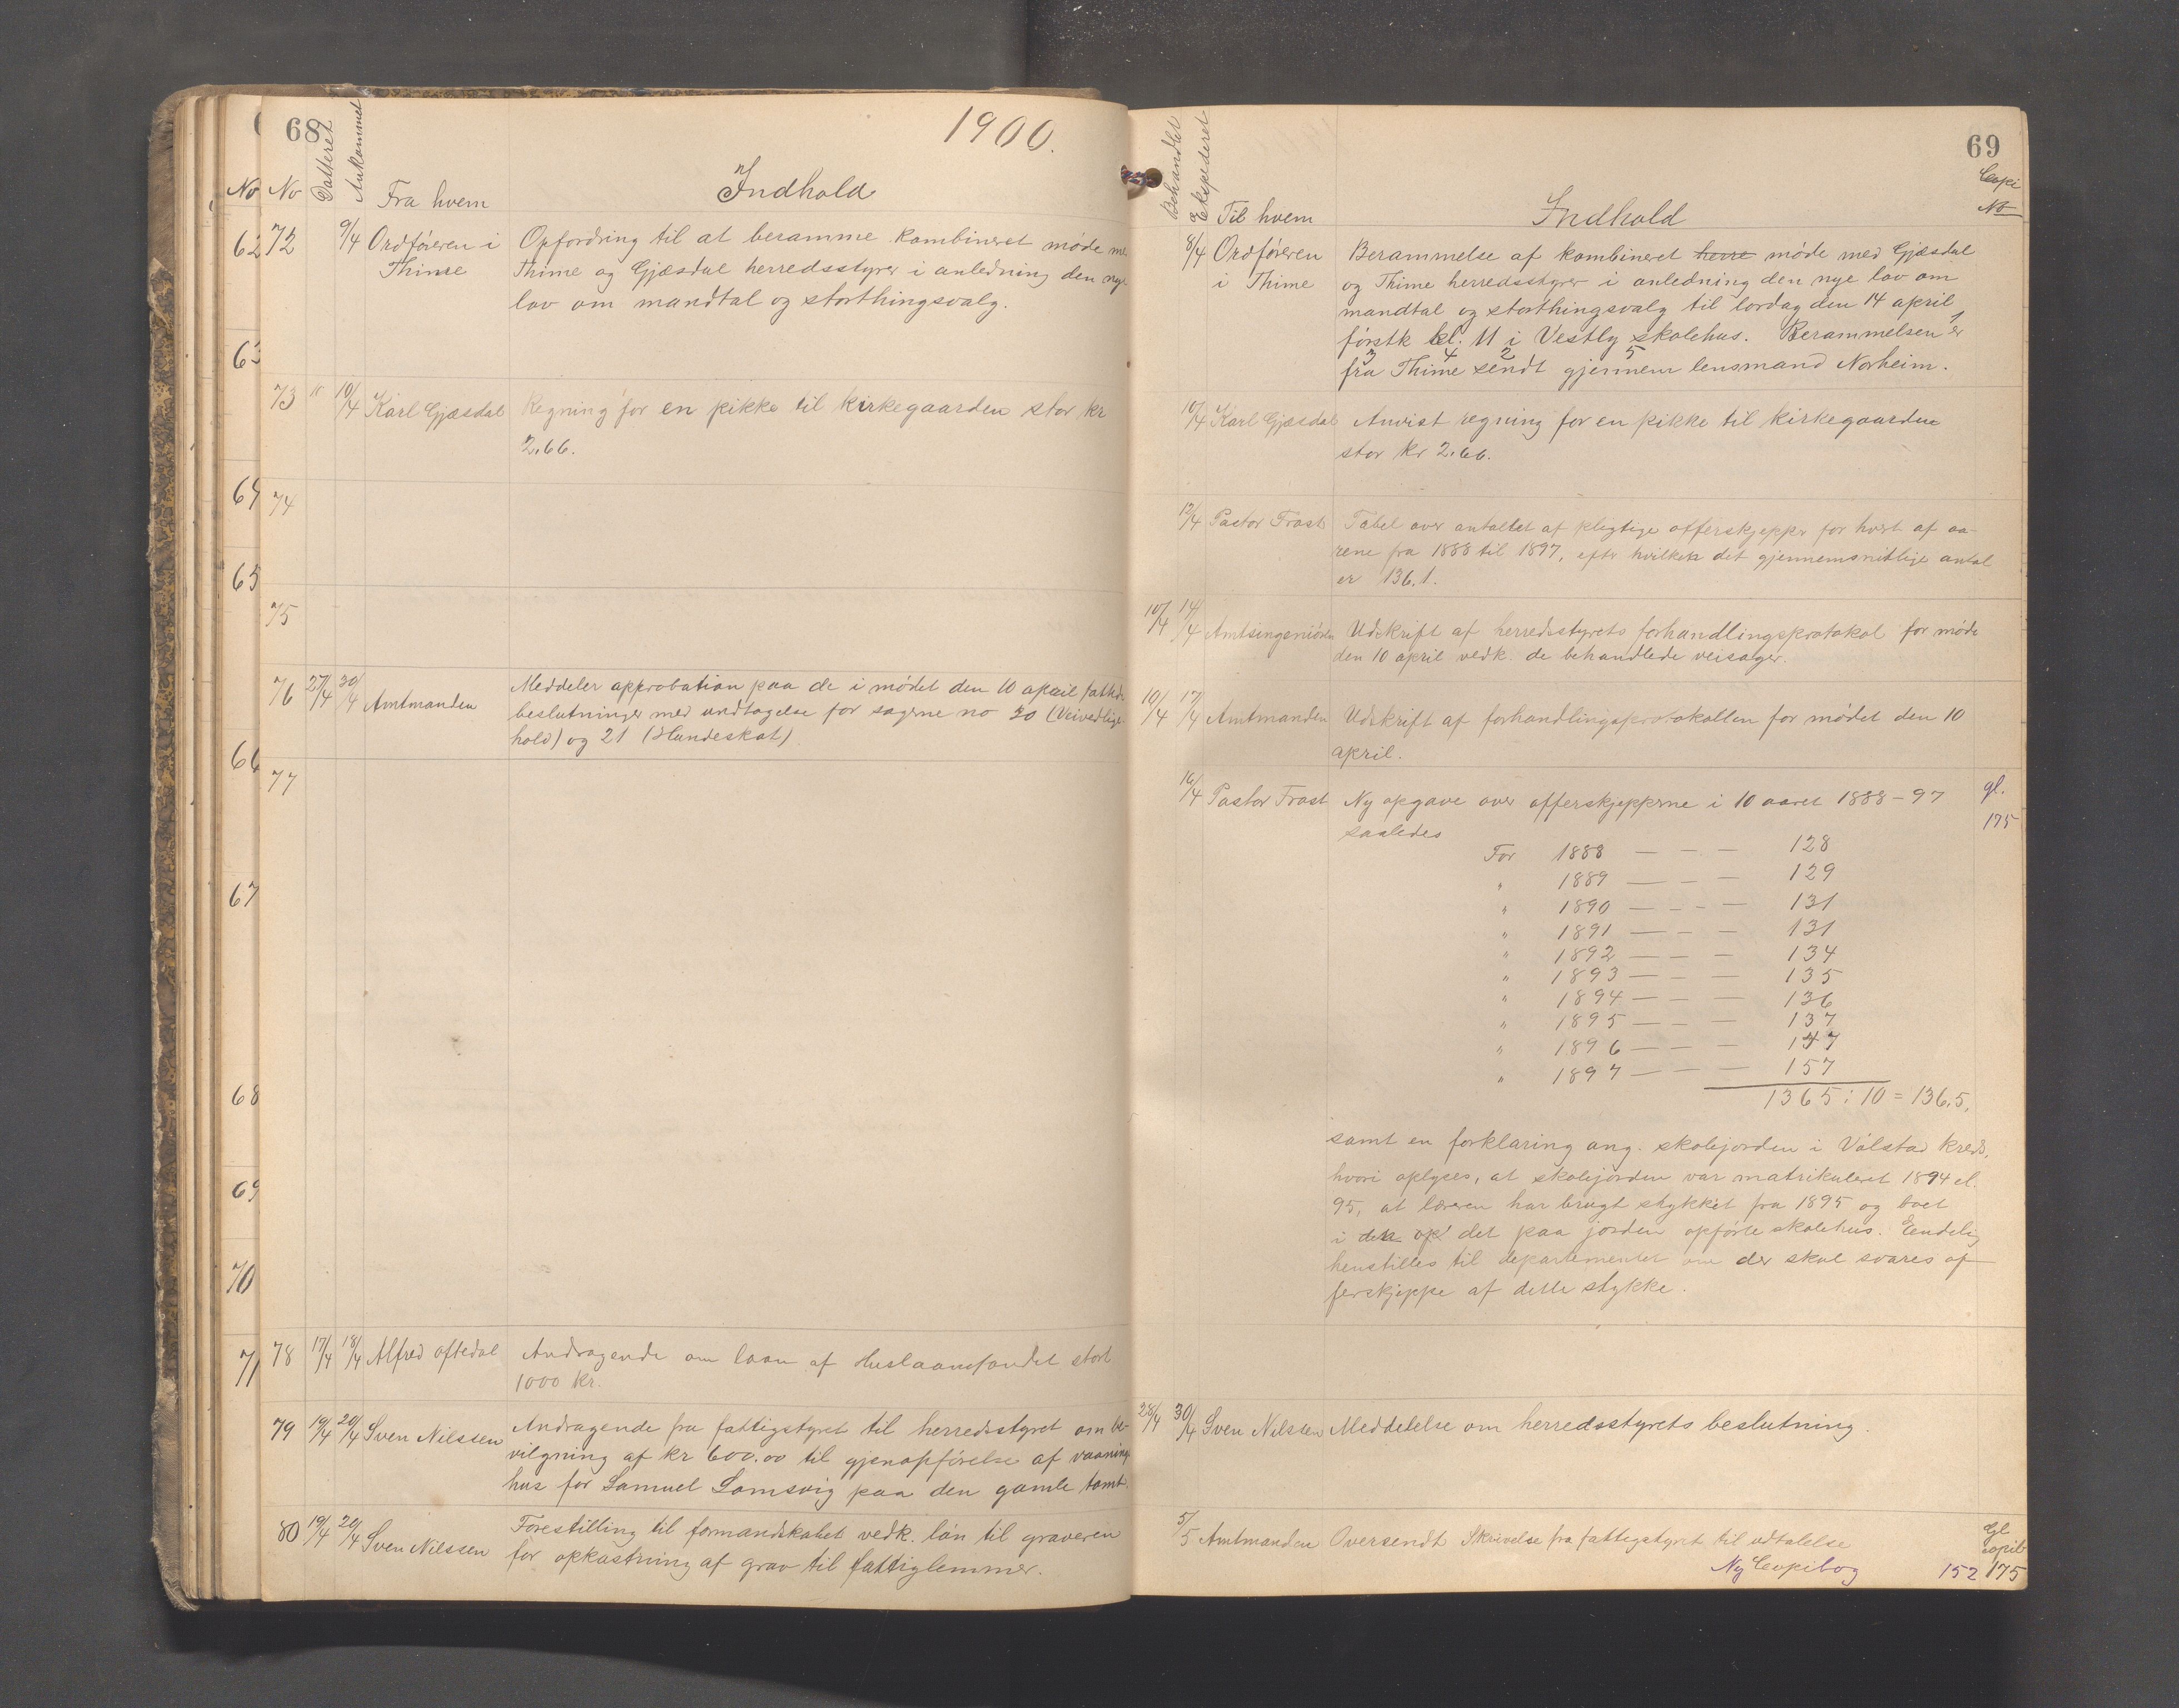 68
1900.
No
No
Datteret
Ankommet
Fra hvem
Indhold
62
63
64
65
66
67
68
69
70
71
72 9/4 Ordføreren i Opfordring til at beramme kombineret møde me
Thime Thime og Gjæsdal herredsstyrer i anledning den nye
lov om mandtal og storthingsvalg.
73 " 10/4 Karl Gjæsdal Regning for en pikke til kirkegaarden stor kr
2.66.
74
75
76 27/4 30/4 Amtmanden Meddeler approbation paa de i mødet den 10 april fattede
beslutninger med undtagelse for sagerne no 20 (Veivedlige-
hold) og 21 (Hundeskat)
77
78 17/4 18/4 Alfred Oftedal Andragende om laan af Huslaansfondet stort
1000 kr.
79 19/4 20/4 Sven Nilssen Andragende fra fattigstyret til herredsstyret om be-
vilgning af kr 600.00 til gjenopførelse af vaanings
hus for Samuel Lomsvig paa den gamle tomt.
80 19/4 20/4 Sven Nilssen Forestilling til formandskabet vedk. løn til graveren
for opkastning af grav til fattiglemmer.
69
Behandlet
Ekspederet
Til hvem
Indhold
Copi
No
8/4 Ordføreren Berammelse af kombineret herre møde med Gjæsdal
i Thime og Thime herredsstyrer i anledning den nye lov om
mandtal og storthingsvalg til lørdag den 14 april
førstk kl. 11 i Vestly skolehus. Berammelsen 1 er
3 4 2 5
fra Thime sendt gjennem lensmand Norheim.
10/4 Karl Gjæsdal Anvist regning for en pikke til kirkegaarden
stor kr 2.66.
12/4 Pastor Frost Tabel over antallet af pligtige offerskjepper for hvert af aa-
rene fra 1888 til 1897, efter hvilken det gjennemsnitlige antal
er 136.1.
10/4 14/4 Amtsingeniøren Udskrift af herredsstyrets forhandlingsprotokol for møde
den 10 april vedk. de behandlede veisager.
10/4 17/4 Amtmanden Udskrift af forhandlingsprotokollen for mødet den 10
april.
16/4 Pastor Frost Ny opgave over offerskjepperne i 10 aaret 1888-97 gl.
saaledes 175
For 1888 — — — 128
" 1889 — — — 129
" 1890 — — — 131
" 1891 — — — 131
" 1892 — — — 134
" 1893 — — — 135
" 1894 — — — 136
" 1895 — — — 137
" 1896 — — — 147
" 1897 — — — 157
1365 : 10 = 136,5,
samt en forklaring ang. skolejorden i Vølstad kreds,
hvori oplyses, at skolejorden var matrikuleret 1894 el.
95, at læreren har brugt stykket fra 1895 og boet
i den op det paa jorden opførte skolehus. Eendelig
henstilles til departementet om der skal svares of-
ferskjeppe af dette stykke.
28/4 30/4 Sven Nilssen Meddelelse om herredsstyrets beslutning.
5/5 Amtmanden Oversendt Skrivelse fra fattigstyret til udtalelse Gl
copib
Ny Copibog 152 175